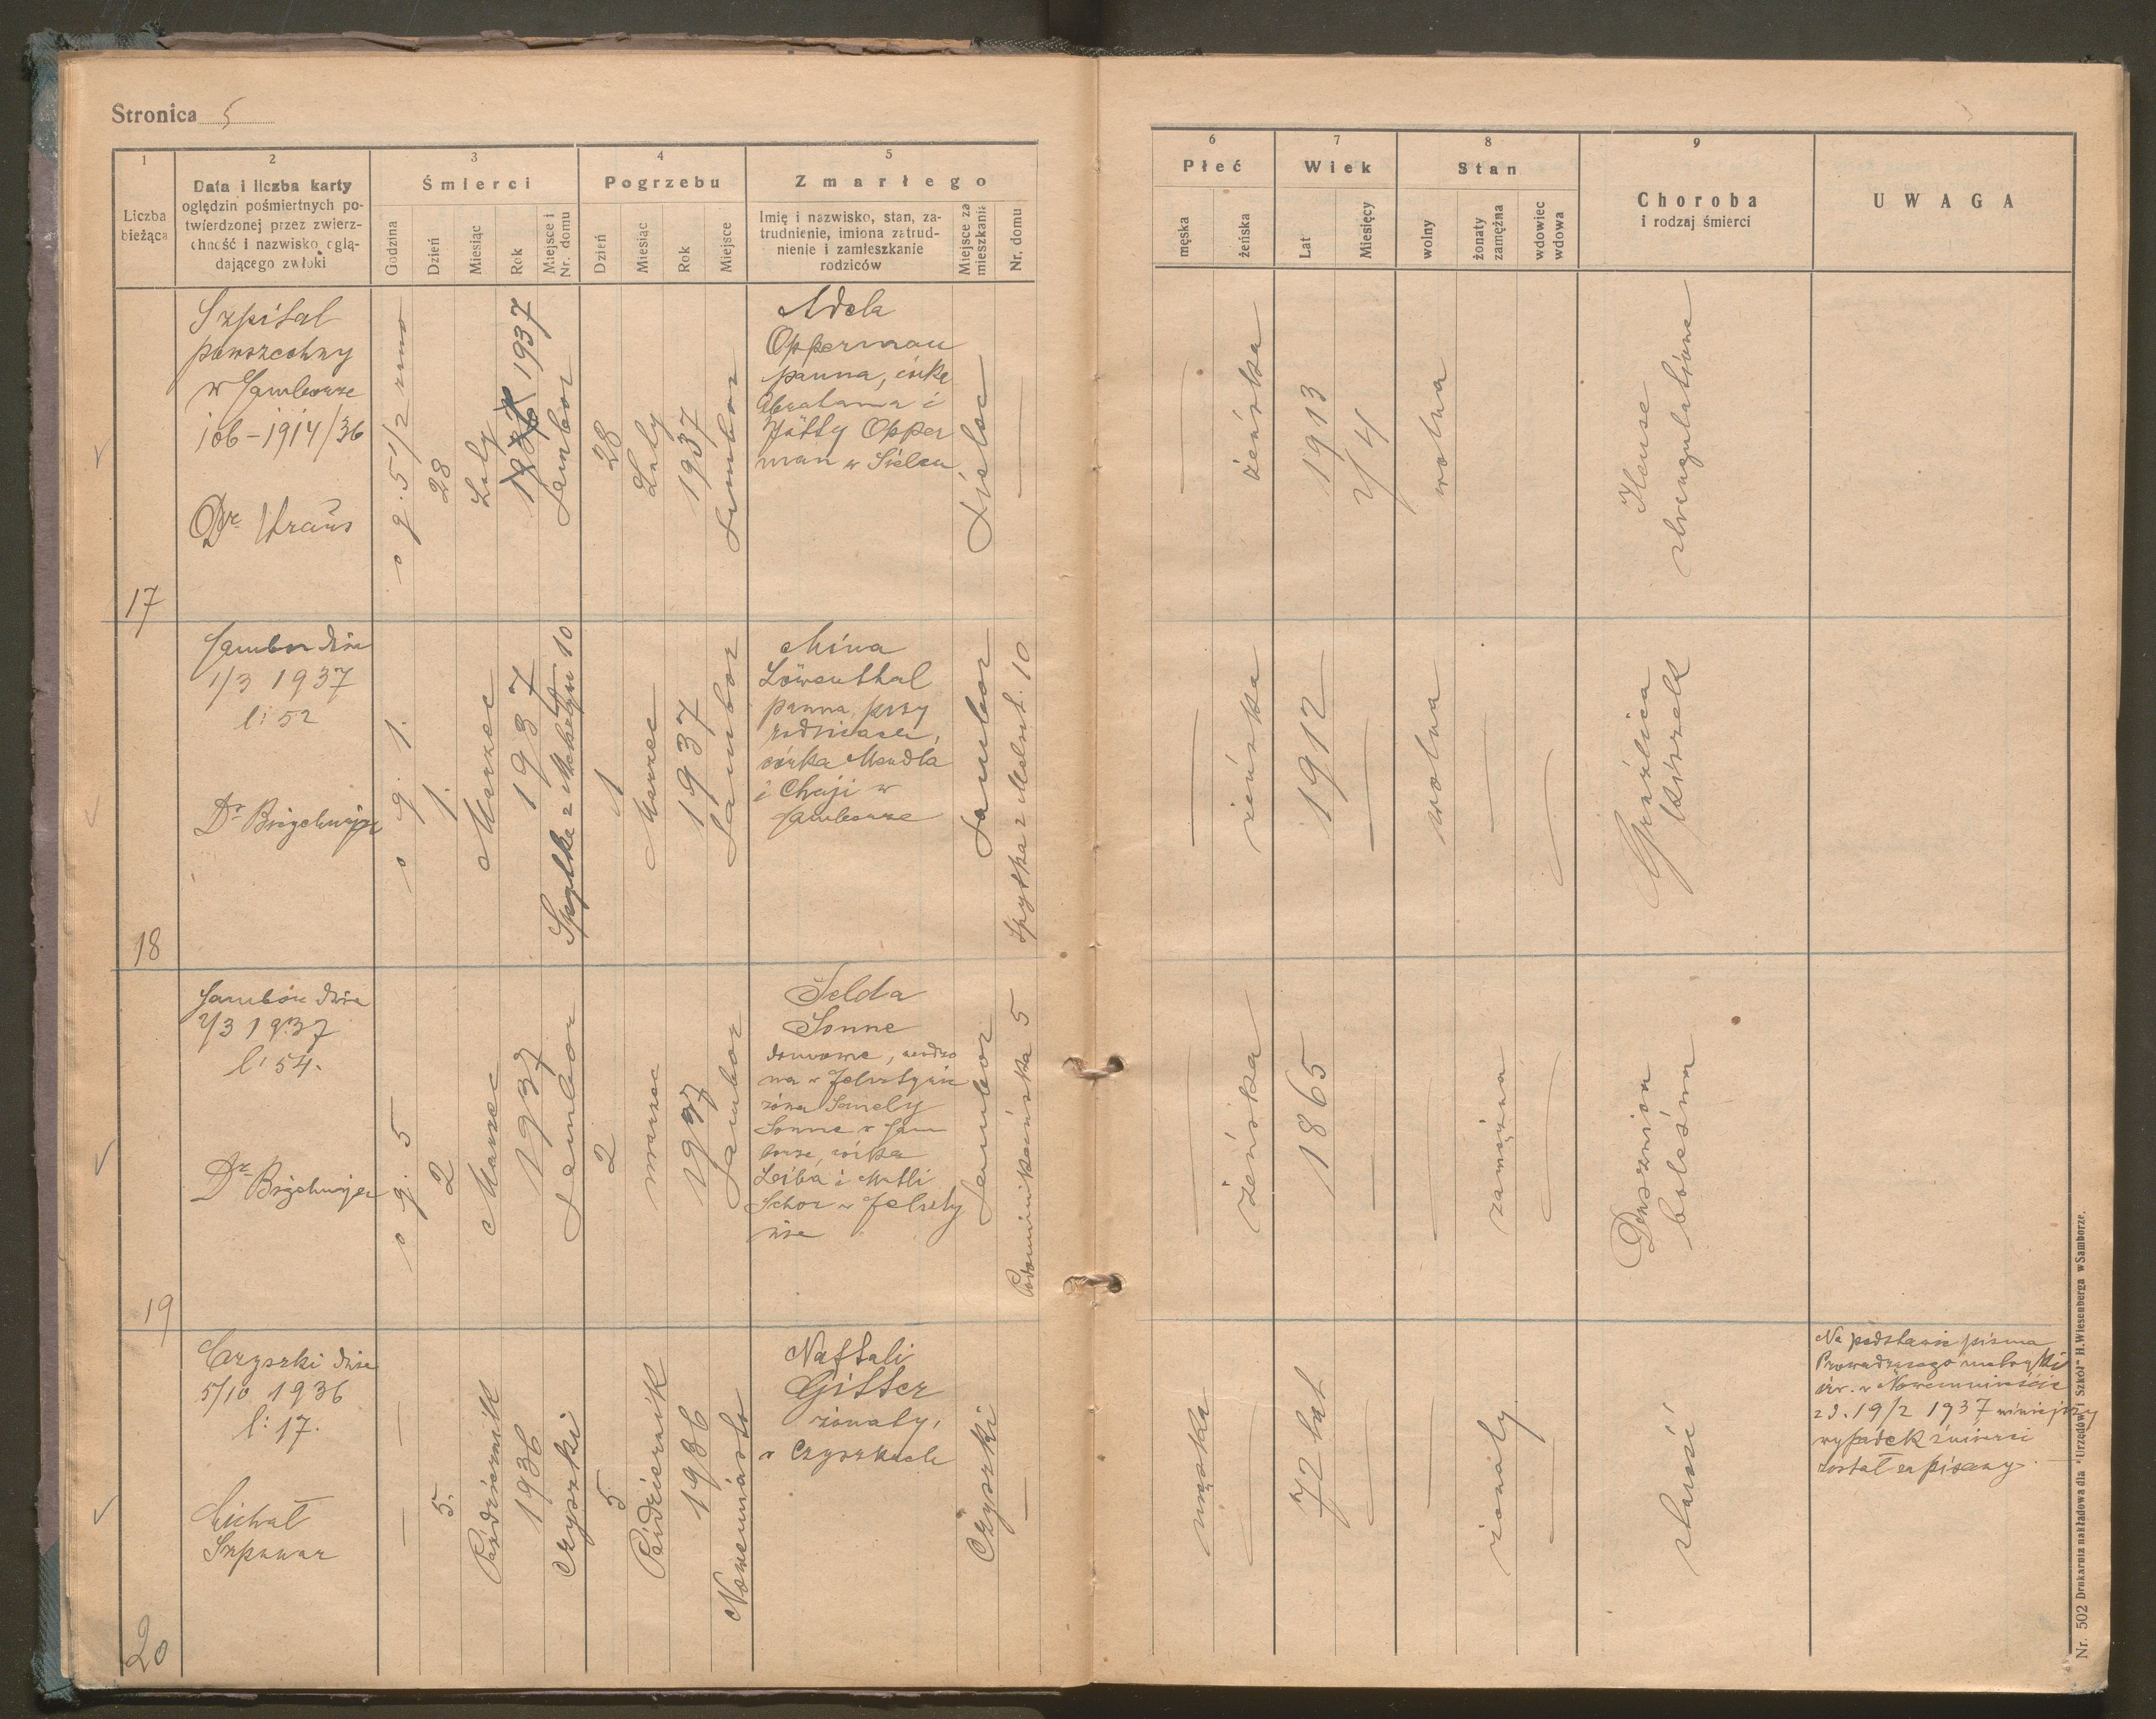 Stronica 5
1
2
3
4
5
6
7
8
9
Liczba
bieżąca
Data i liczba karty
oględzin pośmiertnych po-
twierdzonej przez zwierz-
chność i nazwisko oglą-
dającego zwłoki
Śmierci
Godzina
Dzień
Miesiąc
Rok
Miejsce i
Nr. domu
Pogrzebu
Dzień
Miesiąc
Rok
Miejsce
Zmarłego
Imię i nazwisko, stan, za-
trudnienie, imiona zatrud-
nienie i zamieszkanie
rodziców
Miejsce za
mieszkania
Nr. domu
Płeć
męska
żeńska
Wiek
Lat
Miesięcy
Stan
wolny
żonaty
zamężna
wdowiec
wdowa
Choroba
i rodzaj śmierci
UWAGA
17
Szpital
powszechny
w Samborze
106-1914/36
Dr
o g. 5 1/2 rano
28
Luty
1937
Sambor
28
Luty
1937
Sambor
Adela
Opperman
panna, córka
Abrahama i
Jütty Opper
man w Sielcu
Sielec
żeńska
1913
2/4
wolna
strangulationa
18
Sambor dnia
1/3 1937
l: 52
Dr
o g. 1.
1.
Marzec
1937
Spytka z Melsztyn 10
1
Marzec
1937
Sambor
Mina
Löwenthal
panna, przy
rodzicach,
córka Mendla
i Chaji w
Samborze
Sambor
Spytka z Melszt. 10
żeńska
1912
wolna
Gruźlica
kiszek
19
Sambór dnia
2/3 1937
l: 54.
Dr
o g. 5
2
Marzec
1937
Sambor
2
marzec
1937
Sambor
Selda
Sonne
domowa, urodzo
na w Felsztynie
żona Samely
Sonne w Sam
borze, córka
Leiba i Matli
Schor w Felszty
nie
Sambor
Podominikańska 5
żeńska
1865
zamężna
20
Czyszki dnia
5/10 1936
l: 17.
Michał
5.
Październik
1936
Czyszki
5
Październik
1936
Nowemiasto
Naftali
Gitter
żonaty,
w Czyszkach
Czyszki
męska
72 lat
żonaty
starość
Na podstawie pisma
Prowadzącego metryki
izr. w Nowemmieście
z d. 19/2 1937 niniejszy
wypadek śmierci
został zapisany.
Nr. 502 Drukarnia nakładowa dla "Urzędów i Szkół" H.Wiesenberga w Samborze.